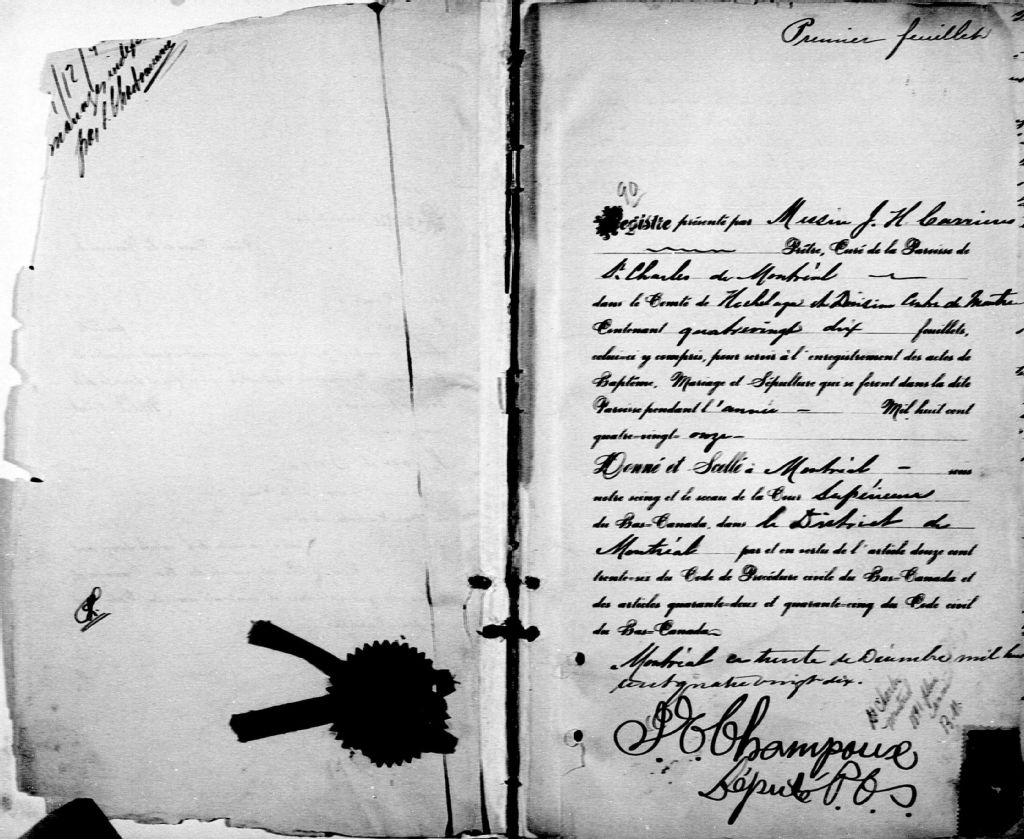 Premier feuillet
90
Registre présenté par Messire J. H. Carrières
Prêtre, Curé de la Paroisse de
St. Charles de Montréal
dans le Comté de Hochelaga et Division Centre de Montré
Contenant quatrevingt dix feuillets,
celui-ci y compris, pour servir à l'enregistrement des actes de
Baptême, Mariage et Sépulture qui se feront dans la dite
Paroisse pendant l'année Mil huit cent
quatre-vingt-onze
Donné et Scellé à Montréal sous
notre seing et le sceau de la Cour Supérieure
du Bas-Canada, dans le District de
Montréal par et en vertu de l'article douze cent
trente-six du Code de Procédure civile du Bas-Canada et
des articles quarante-deux et quarante-cinq du Code civil
du Bas-Canada.
Montréal ce trente de Décembre mil hui
cent quatre vingt dix.
Champoux
Député P. C. S.